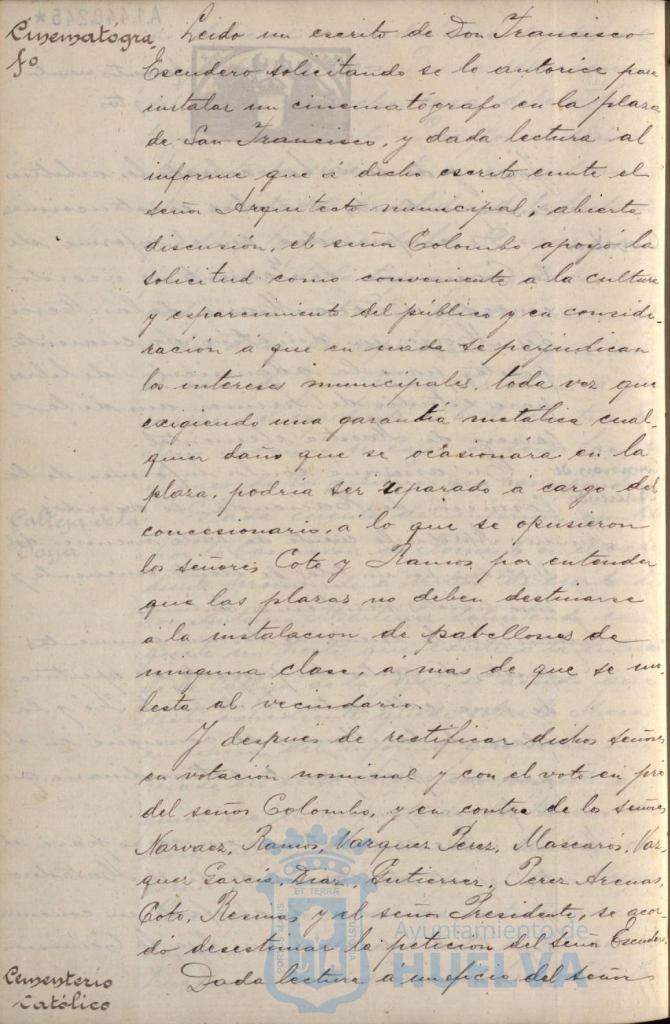 Cinematógra-
fo
Leido un escrito de Don Francisco
Escudero solicitando se le autorice para
instalar un cinematógrafo en la plaza
de San Francisco, y dada lectura al
informe que á dicho escrito emite el
señor Arquitecto municipal; abierta
discusión, el señor Colombo apoyó la
solicitud como conveniente a la cultura
y esparcimiento del público y en conside-
ración á que en nada se perjudican
los intereses municipales, toda vez que
exigiendo una garantía metálica cual-
quier daño que se ocasionára en la
plaza, podría ser reparado á cargo del
concesionario, á lo que se opusieron
los señores Coto y Ramos por entender
que las plazas no deben destinarse
á la instalacion de pabellones de
ninguna clase, á mas de que se mo-
lesta al vecindario.
Y después de rectificar dichos señores
en votación nominal y con el voto en pró
del señor Colombo, y en contra de los señores
Narvaez, Ramos, Vazquez Perez, Mascarós, Vaz-
quez García, Diaz, Gutierrez, Perez Arenas,
Coto, y el señor Presidente, se acor-
dó desestimar la peticion del señor Escudero.
Cementerio
Católico
Dada lectura á un oficio del señor
Ayuntamiento de
HUELVA